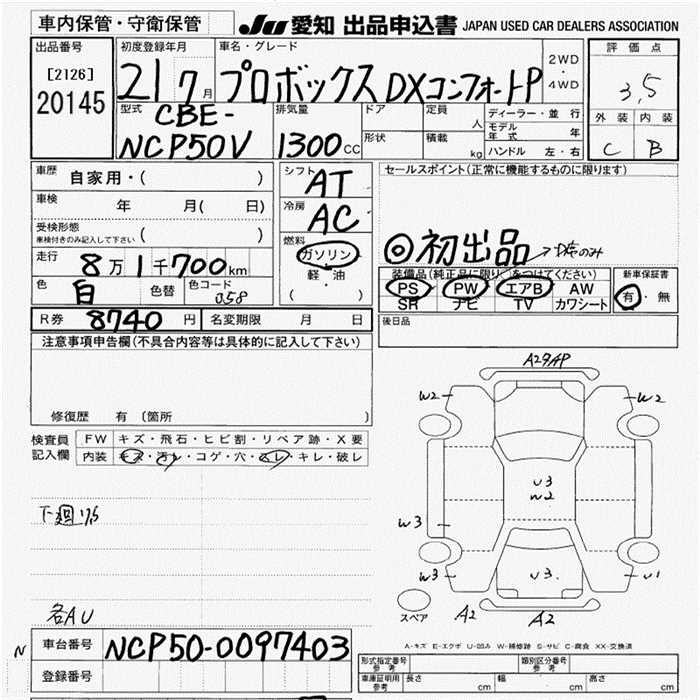 車内保管・守衛保管
JU 愛知 出品申込書 JAPAN USED CAR DEALERS ASSOCIATION
出品番号
[2126]
20145
初度登録年月
21 7月
車名・グレード
プロボックス DXコンフォートP
2WD
・
4WD
評価点
3,5
外装 内装
C B
型式
CBE-
NCP50V
排気量
1300cc
ドア
形状
定員
人
積載
kg
ディーラー・並行
モデル年式 年
ハンドル 左・右
車歴
自家用・( )
車検 年 月( 日)
受検形態
車検付きのみ記入して下さい ( )
走行 8万1千700km
色 白 色替 色コード 058
シフト AT
冷房 AC
燃料
ガソリン
軽・油
( )
セールスポイント(正常に機能するものに限ります)
◎初出品
装備品(純正品に限り○をつけてください)
PS PW エアB AW
SR ナビ TV カワシート
新車保証書
有・無
R券 8740円 名変期限 月 日
後日品
注意事項申告欄(不具合内容等は具体的に記入して下さい)
修復歴 有(箇所 )
検査員
記入欄
FW キズ・飛石・ヒビ割・リペア跡・X要
内装 キズ・汚レ・コゲ・穴・スレ・キレ・破レ
下廻
各AU
A2 P
W2
W2
U3
W2
W3
W3
U3.
U1
スペア
A2
A2
A-キズ E-エクボ U-凹み W-補修跡 S-サビ C-腐食 XX-交換済
N
車台番号 NCP50-0097403
登録番号
型式指定番号
参考
類別区分番号
参考
車庫証明用
参考
長さ cm 幅 cm 高さ cm